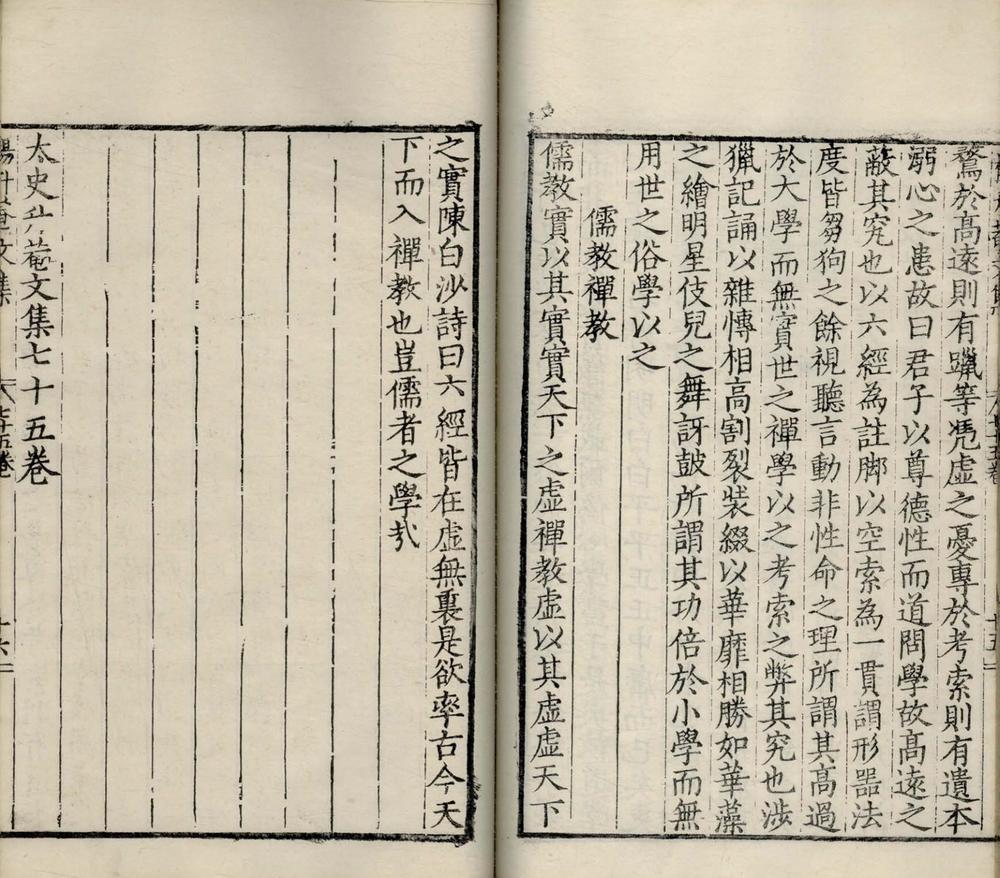 鶩於高遠則有躐等凭虛之憂專於考索則有遺本
溺心之患故曰君子以尊德性而道問學故高遠之
蔽其究也以六經為註脚以空索為一貫謂形器法
度皆芻狗之餘視聽言動非性命之理所謂其高過
於大學而無實世之禪學以之考索之弊其究也涉
獵記誦以雜慱相高割裂裝綴以華靡相勝如華藻
之繪明星伎兒之舞訝鼓所謂其功倍於小學而無
用世之俗學以之
儒教禪教
儒教實以其實實天下之虛禪教虛以其虛虛天下
之實陳白沙詩曰六經皆在虛無裏是欲率古今天
下而入禪教也豈儒者之學㢤
太史升菴文集七十五卷